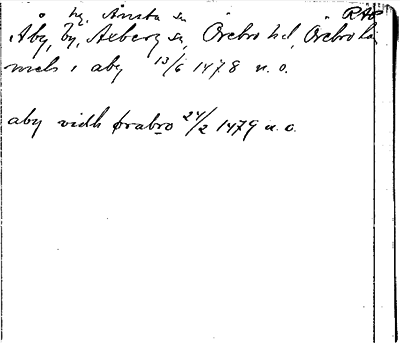 hg. Ånsta sn RAP
Åby, by, Axberg sn, Örebro hd, Örebro län
niels i aby 13/6 1478 u. o.
aby vidh ørabro 24/2 1479 u. o.